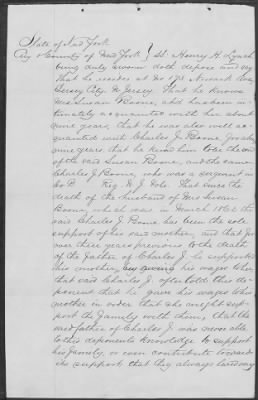 State of New York
City & County of New York } SS. Henry H. Lynch
being duly sworn doth depose and say
that he resides at No 173 Newark Ave
Jersey City N. Jersey. That he knows
Mrs Susan Boone, and has been in-
timately acquainted with her about
nine years, that he was also well ac-
quainted with Charles J. Boone for
nine years that he knew him to be the son
of the said Susan Boone, and the same
Charles J Boone, who was a sergeant in
Co B Reg. N J Vols. That since the
death of the husband of Mrs Susan
Boone, which was in March 186 the
said Charles J Boone has been the sole
support of his said mother, and that for
over three years previous to the death
of the father of Charles J. he supported
his mother, by giving his wages to her
that said Charles J. often told this de-
ponent that he gave his wages to his
mother in order that she might sup-
port the family with them, that the
said father of Charles J. was never able
to this deponents knowledge to support
his family, or even contribute towards
the support that they always lived very